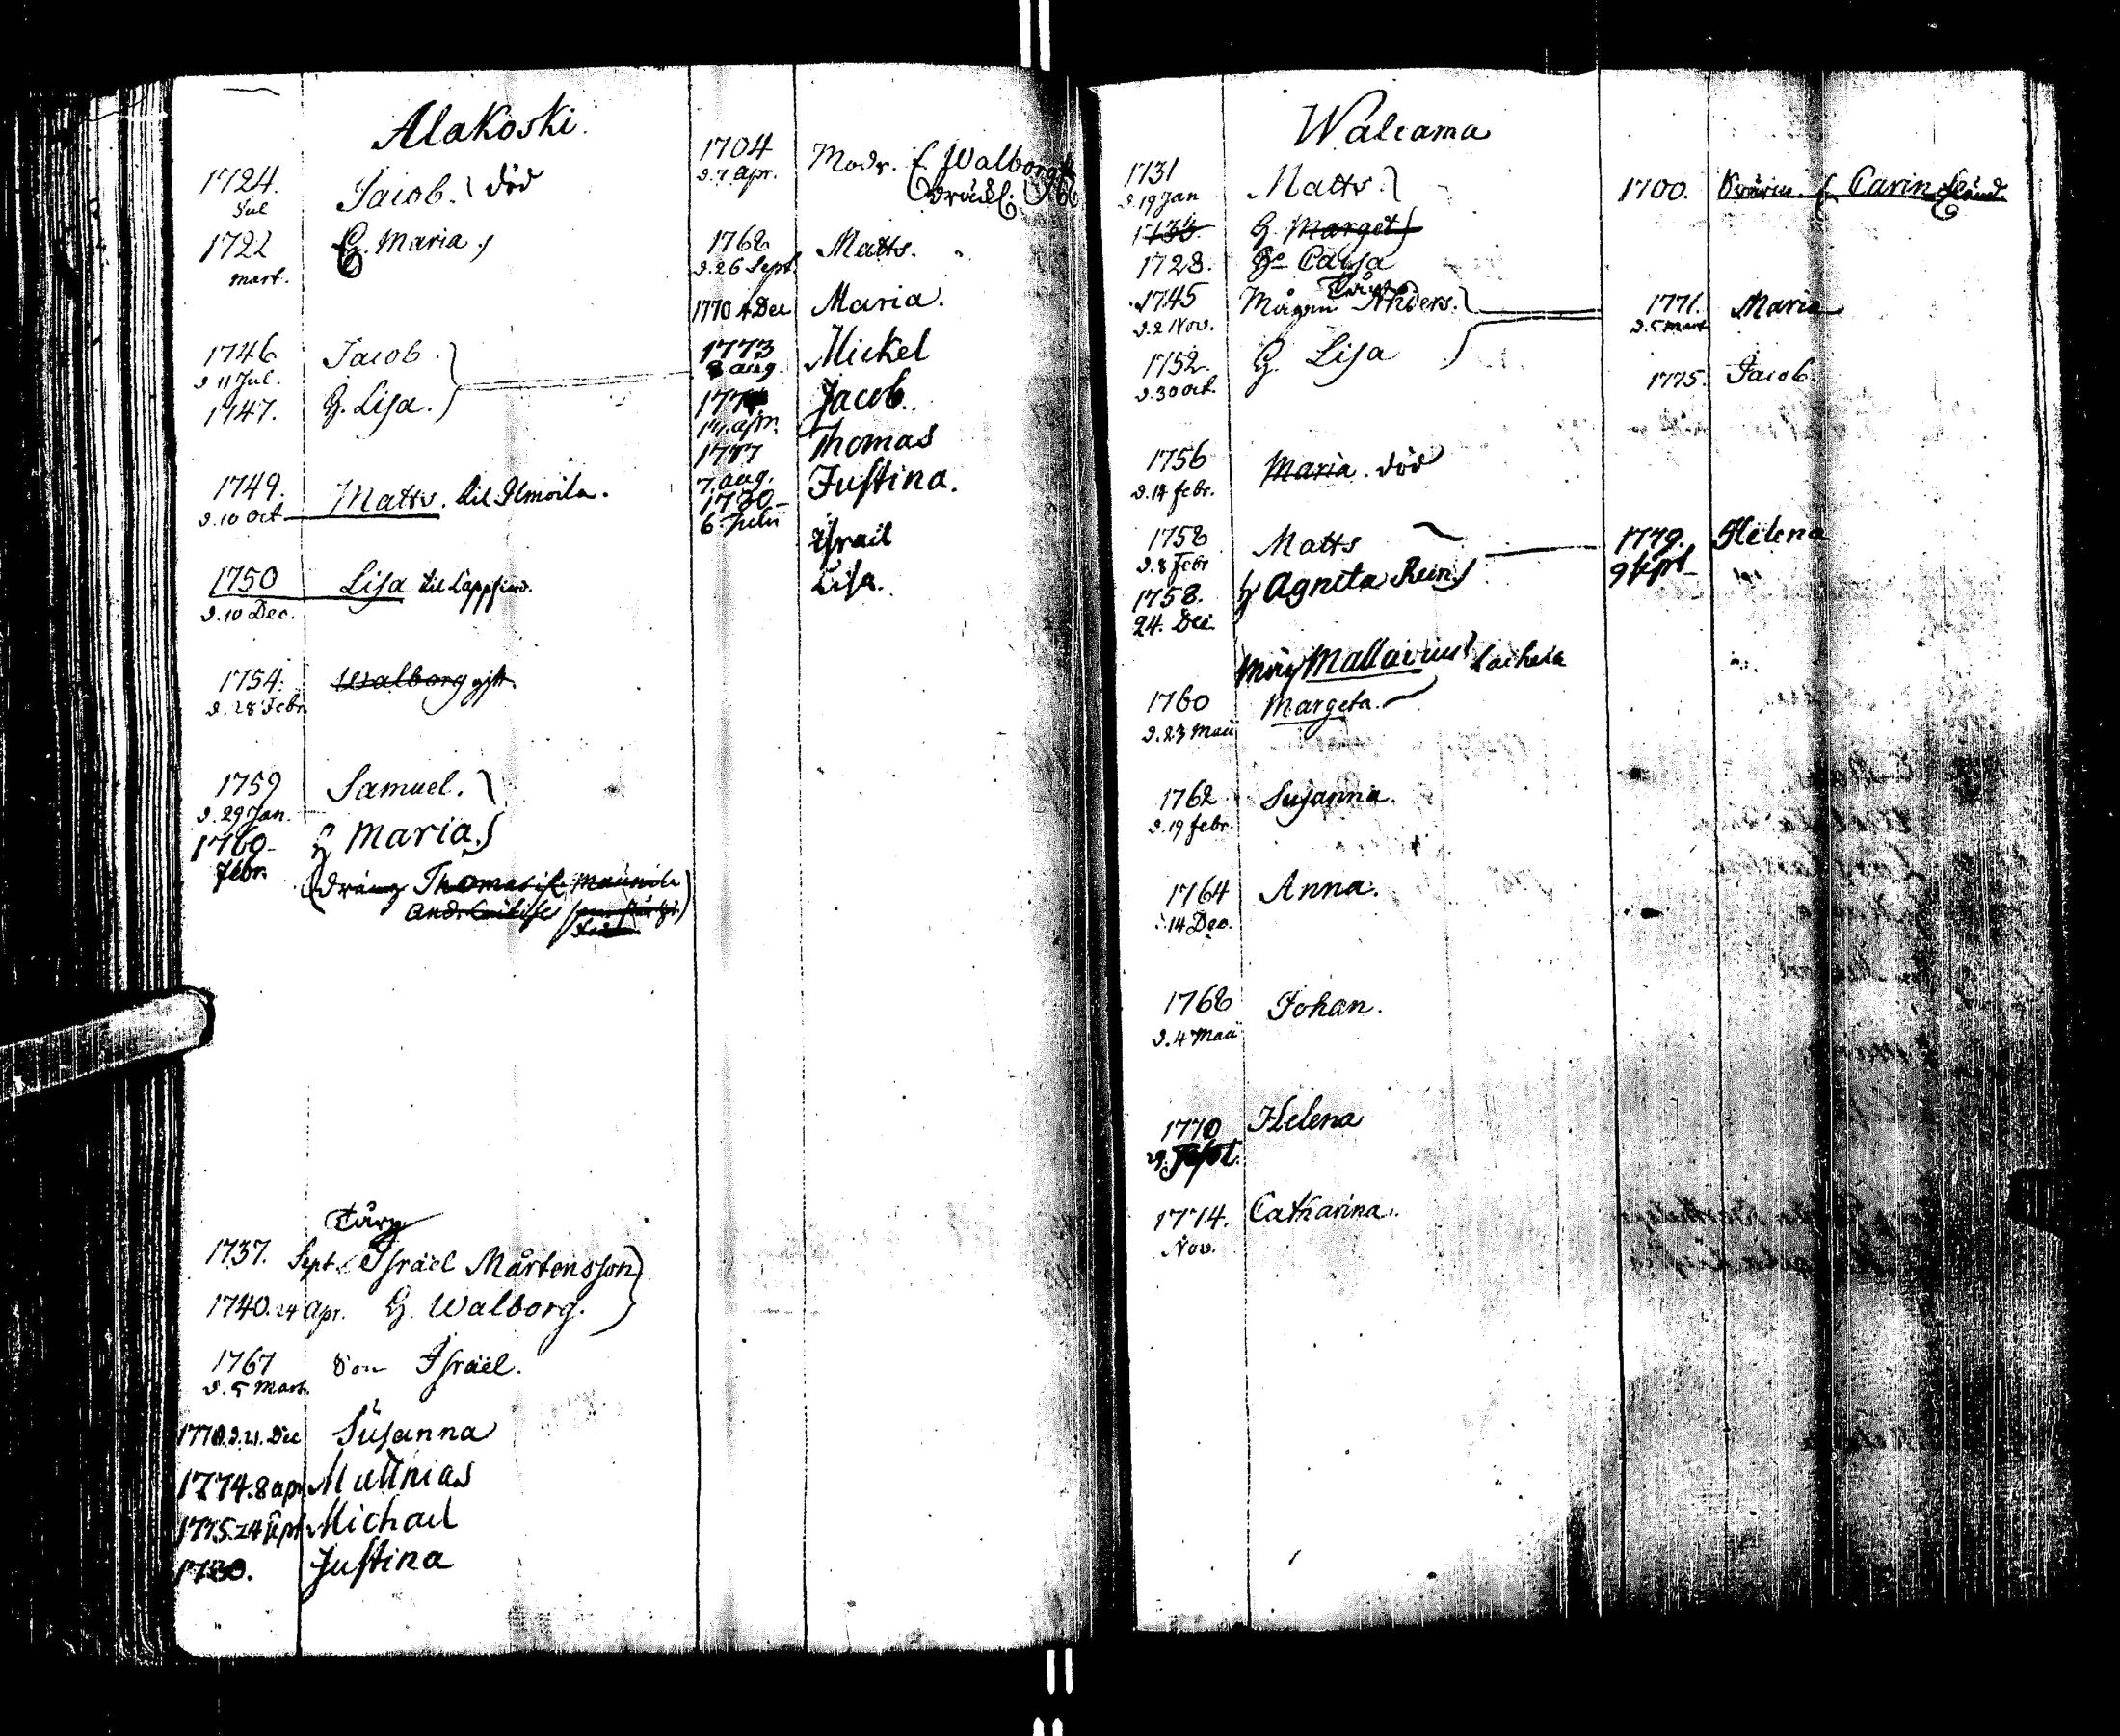 Alakoski.
1724. Jul Jacob. död
1722 mart. H. Maria.
1746 d 11 Jul. Jacob.
1747. H. Lisa.
1749. d. 10 Oct Matts. til Ilmoila.
1750 d. 10 Dec. Lisa til
1754. d. 28 Febr Walborg gift.
1759 d. 29 Jan. Samuel.
1760 febr. H Maria.
dräng Thomas
And.
Tårp
1737. Sept. Israël Mårtensson
1740. 24 Apr. H. Walborg.
1767 d. 5 Mart. Son Israël.
1770 d. 21. Dec Susanna
1774. 8 apr Matthias
1775 24 sept Michael
1780. Justina
1704 d. 7. Apr. Modr. Walborg
1768 d. 26 Sept Matts.
1770 4 Dec Maria.
1773 8 aug. Mickel
177 apr. Jacob.
1777 7. aug. Thomas
1780 6 Julii Justina.
Israël
Lisa.
Walcama
1731 d. 19 Jan Matts
1733. H. Marget
1728. Caisa
Tårp
1745 d. 2 Nov. Mågen Anders.
1752 d. 30 Oct. H. Lisa
1756 d. 14 febr. Maria. död
1758 d. 8 Febr Matts
1758. 24. Dec H Agneta
Måg
1760 d. 23 Maii Margeta.
1762 d. 19 febr. Susanna.
1764 14 Dec. Anna.
1768 d. 4 Maii Johan.
1770 29. Sept. Helena
1774. Nov. Catharina.
1700. Carin
1771. d. 5 mart Maria
1775. Jacob.
1779. 9 sept Helena